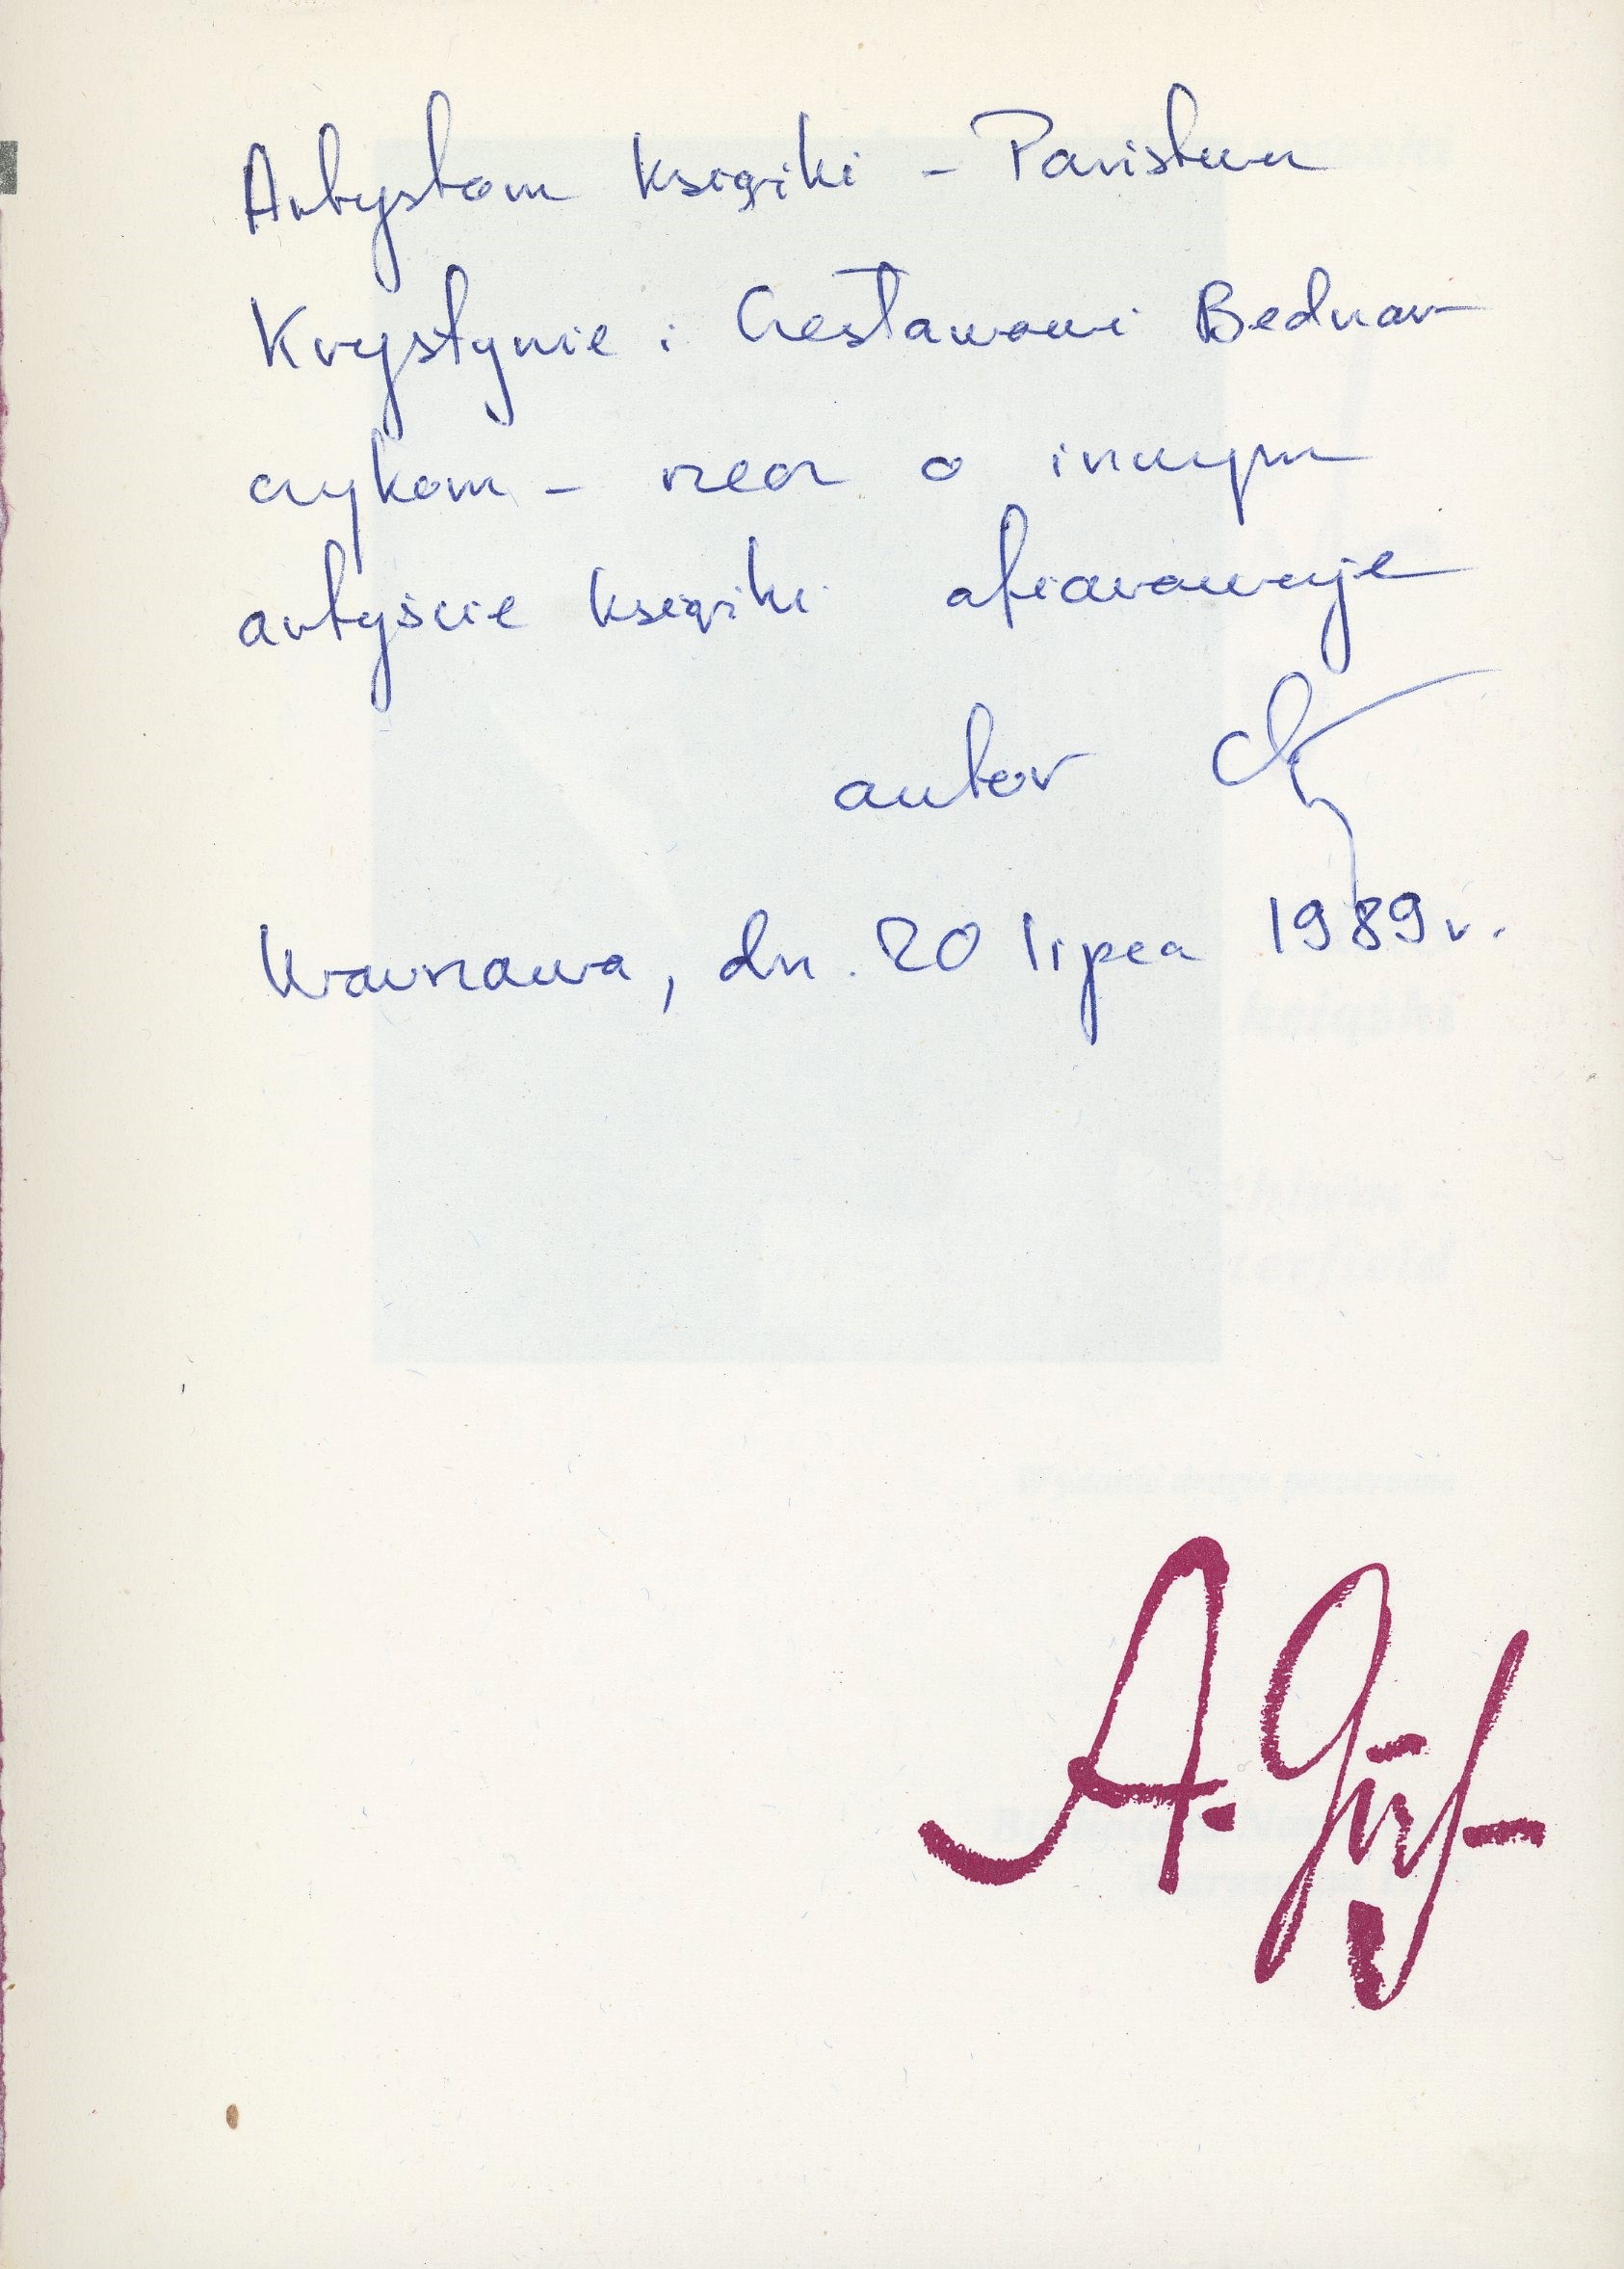 Artystom książki – Państwu
Krystynie i Czesławowi Bednar-
czykom – rzecz o innym
artyście książki ofiarowuje
autor
Warszawa, dn. 20 lipca 1989 r.
Wydanie drugie poszerzone
A.